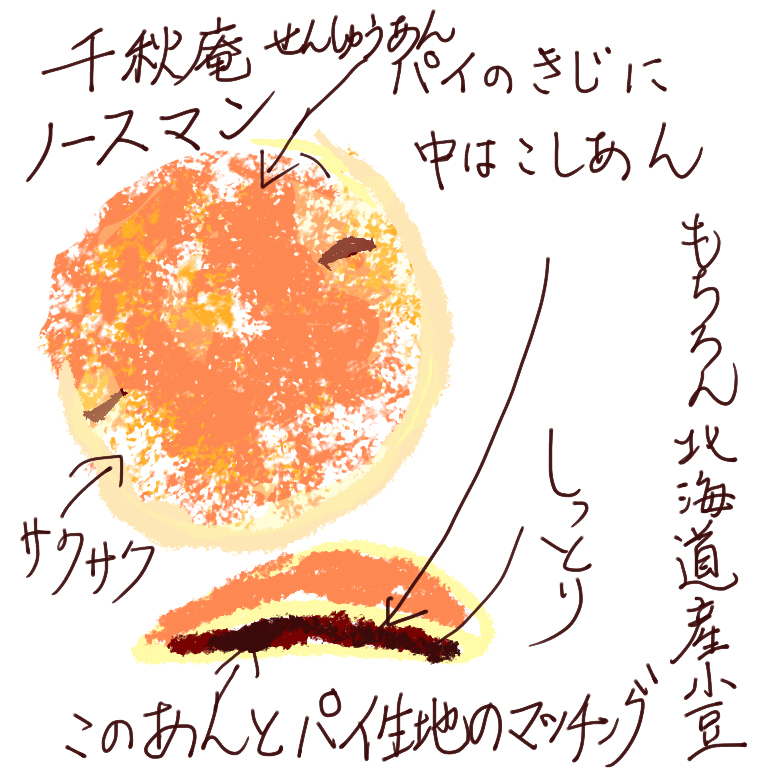 千秋庵 せんしゅうあん
ノースマン
パイのきじに
中はこしあん
もちろん北海道産小豆
サクサク
しっとり
このあんとパイ生地のマッチング